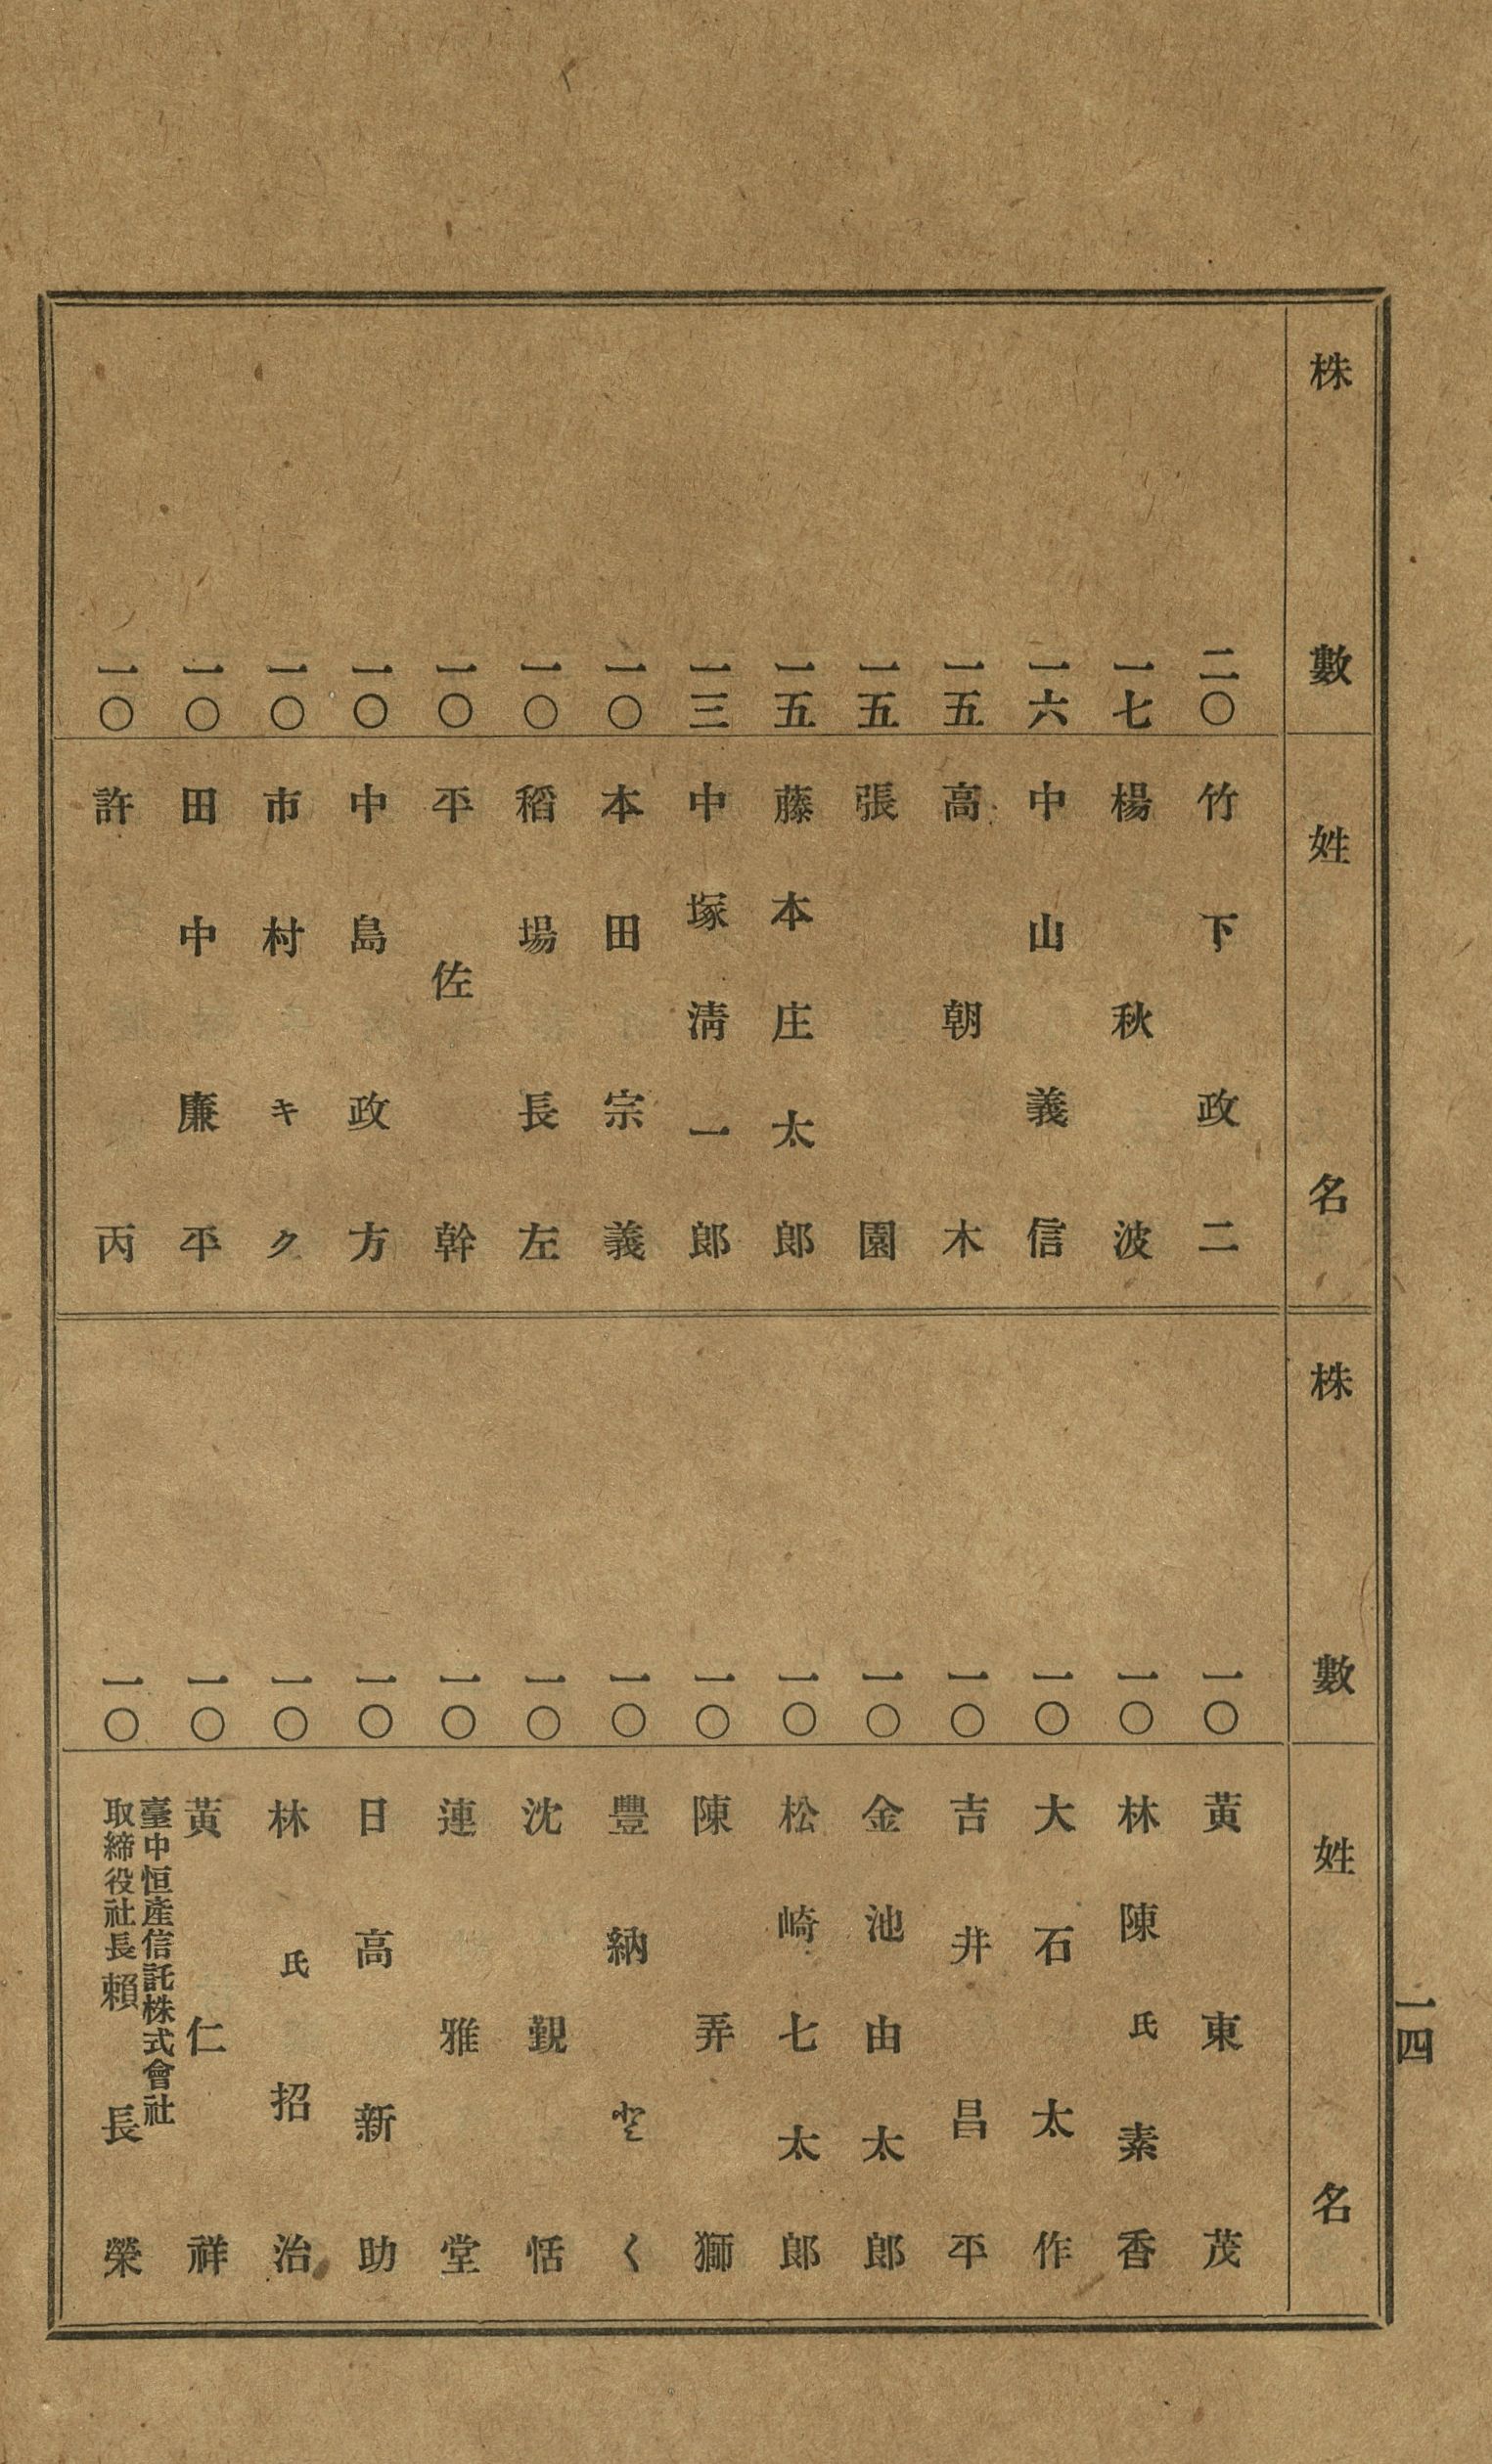 株數 姓名
二〇 竹下政二
一七 楊秋波
一六 中山義信
一五 高朝木
一五 張園
一五 藤本庄太郎
一三 中塚淸一郎
一〇 本田宗義
一〇 稻場長左
一〇 平佐幹
一〇 中島政方
一〇 市村キク
一〇 田中廉平
一〇 許丙
株數 姓名
一〇 黃東茂
一〇 林陳氏素香
一〇 大石太作
一〇 吉井昌平
一〇 金池由太郎
一〇 松崎七太郎
一〇 陳弄獅
一〇 豐納く
一〇 沈覲恬
一〇 連雅堂
一〇 日高新助
一〇 林氏招治
一〇 黃仁祥
一〇 臺中恒產信託株式會社
取締役社長 賴長榮
一四